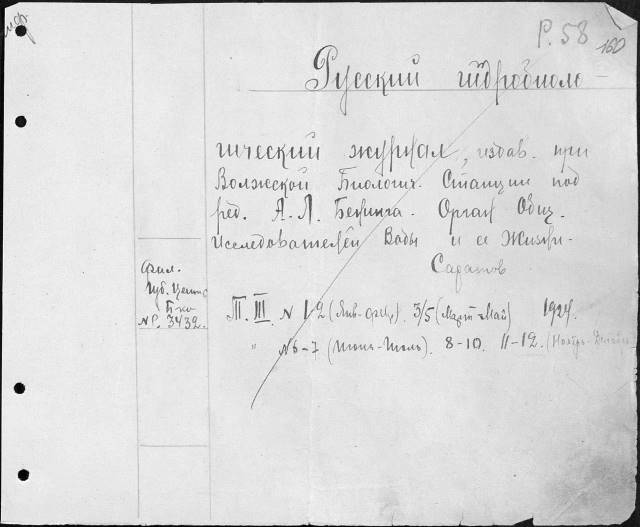 Р. 58
160
Русский гидробиоло-
гический журнал, издав. при
Волжской Биологич. Станции под
ред. А.Л. Бенинга. Орган Общ.
Исследователей Воды и ее Жизни.
Саратов
Фил.
Губ. Центр
Б-ка
№. 3432.
Т. III. N 1-2 (Янв-Февр). 3/5 (Март-Май) 1924.
" N 6-7 (Июнь-Июль). 8-10. 11-12. (Ноябрь-Декабрь